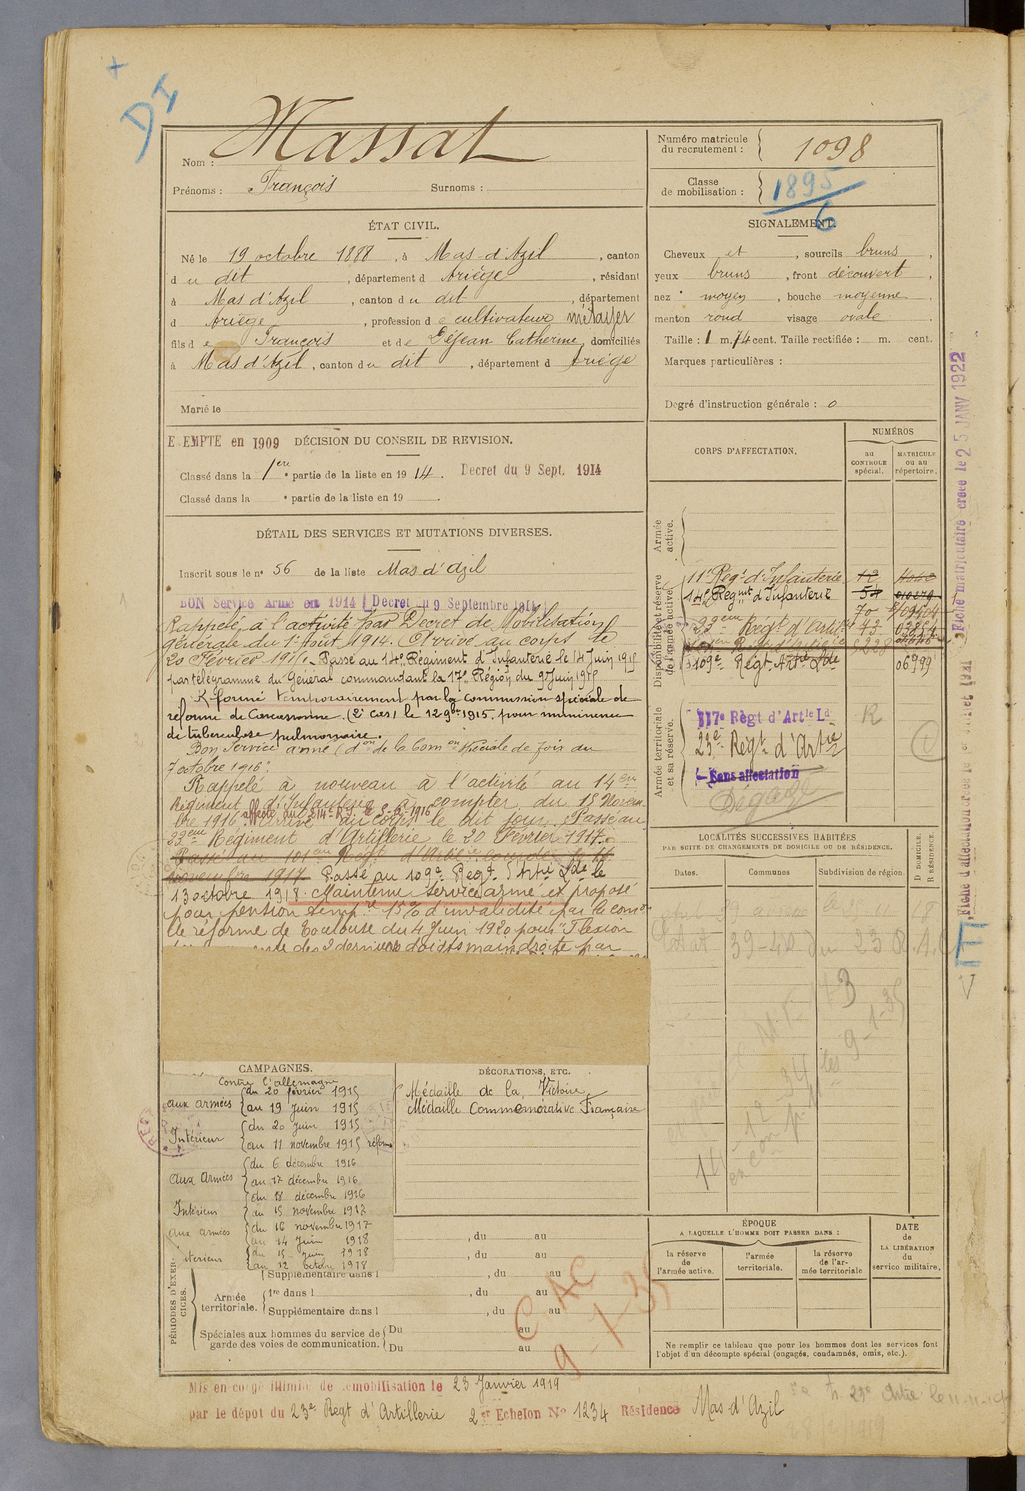 DI
Nom : Massat
Prénoms : François Surnoms :
Numéro matricule du recrutement : 1098
Classe de mobilisation : 1895
6
ÉTAT CIVIL.
Né le 19 octobre 1888, à Mas-d'Azil, canton
du dit, département d Ariège, résidant
à Mas d'Azil, canton du dit, département
d Ariège, profession de cultivateur métayer
fils de François et de Déjean Catherine, domiciliés
à Mas d'Azil, canton du dit, département d Ariège
Marié le
SIGNALEMENT.
Cheveux et, sourcils bruns,
yeux bruns, front découvert,
nez moyen, bouche moyenne
menton rond visage ovale
Taille : 1 m. 74 cent. Taille rectifiée : m. cent.
Marques particulières :
Degré d'instruction générale : 0
EXEMPTE en 1909 DÉCISION DU CONSEIL DE REVISION.
Classé dans la 1ere partie de la liste en 1914. Decret du 9 Sept. 1914
Classé dans la e partie de la liste en 19 .
DÉTAIL DES SERVICES ET MUTATIONS DIVERSES.
Inscrit sous le no 56 de la liste Mas d'Azil
BON Service Armé en 1914 (Decret du 9 Septembre 1914)
Rappelé à l'activité par Décret de Mobilisation
générale du 1er Août 1914. Arrivé au corps le
20 Février 1915. Passé au 14e Régiment d'Infanterie le 14 Juin 1915
par télégramme du Général commandant la 17e Région du 9 Juin 1915
Réformé temporairement par la commission spéciale de
réforme de Carcassonne (2e cas) le 12 9bre 1915 pour imminence
de tuberculose pulmonaire.
Bon Service armé (don de la Comon spéciale de Foix du
7 octobre 1916.
Rappelé à nouveau à l'activité au 14eme
Régiment d'Infanterie à compter du 15 Novem
bre 1916. Arrivé au corps le dit jour. Passé au
affecté au 214e R.I. le 6-1916
23eme Régiment d'Artillerie le 20 Février 1917.
Passé au 101eme Regt d'Artie lourde le 16
novembre 1917 Passé au 109e Regt Artie Lde le
13 octobre 1918. Maintenu service armé et proposé
pour pension tempre 15% d'invalidité par la comon
de réforme de Toulouse du 4 Juin 1920 pour "Flexion
des 2 derniers doigts main droite par
CORPS D'AFFECTATION.
NUMÉROS
au CONTROLE spécial.
MATRICULE ou au répertoire.
Armée active.
Disponibilité et réserve de l'armée active.
11e Regt d'Infanterie 12
14e Regiment d'Infanterie 54
70
23eme Regt d'Artie 73
109e Regt Artie Lde 06999
Armée territoriale et sa réserve.
117e Règt d'Artle Lde R
23e Regt d'Artie
Sans affectation
Dégagé
LOCALITÉS SUCCESSIVES HABITÉES
PAR SUITE DE CHANGEMENTS DE DOMICILE OU DE RÉSIDENCE.
Dates. Communes Subdivision de région. D DOMICILE. R RÉSIDENCE.
CAMPAGNES.
Contre l'allemagne
aux armées du 20 février 1915
au 19 Juin 1915
Intérieur du 20 juin 1915
au 11 novembre 1915 réforme
Aux Armées du 6 décembre 1916
au 17 décembre 1916
Intérieur du 18 décembre 1916
au 15 novembre 1917
aux armées du 16 novembre 1917
au 14 Juin 1918
Intérieur du 15 juin 1918
au 12 octobre 1918
DÉCORATIONS, ETC.
Médaille de la Victoire
Médaille Commémorative Française
, du au
, du au
Supplémentaire dans l , du au
PÉRIODES D'EXERCICES.
Armée territoriale. 1re dans l , du au
Supplémentaire dans l , du au
Spéciales aux hommes du service de garde des voies de communication. Du au
Du au
C AC
9-1-35
ÉPOQUE
A LAQUELLE L'HOMME DOIT PASSER DANS :
la réserve de l'armée active.
l'armée territoriale.
la réserve de l'armée territoriale
DATE DE LA LIBÉRATION du service militaire.
Ne remplir ce tableau que pour les hommes dont les services font
l'objet d'un décompte spécial (engagés, condamnés, omis, etc.).
Mis en congé illimité de démobilisation le 23 Janvier 1919
par le dépot du 23e Regt d'Artillerie 2er Echelon No 1234 Résidence Mas-d'Azil
Fiche matriculaire créée le 25 JANV 1922